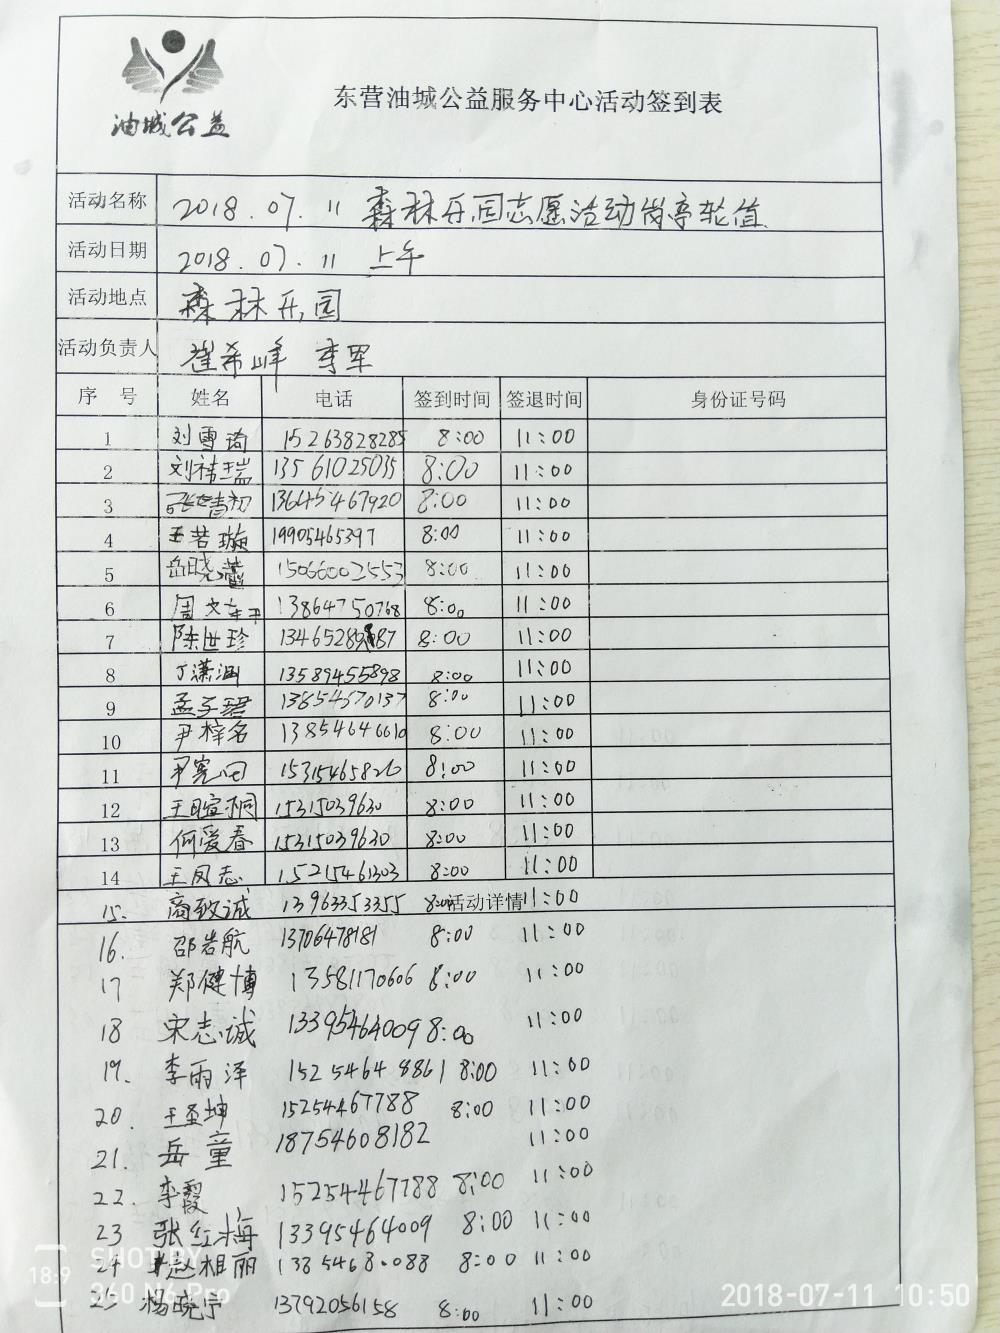 油城公益
东营油城公益服务中心活动签到表
活动名称 2018.07.11 森林乐园志愿活动岗亭轮值
活动日期 2018.07.11 上午
活动地点 森林乐园
活动负责人 崔希峰 李军
序号 姓名 电话 签到时间 签退时间 身份证号码
1 刘雪琦 15263828285 8:00 11:00
2 刘祎瑞 13561025035 8:00 11:00
3 13645467920 8:00 11:00
4 王若璇 19905465397 8:00 11:00
5 岳晓蕾 15066002553 8:00 11:00
6 周文 13864750768 8:00 11:00
7 陈世珍 8:00 11:00
8 丁潇涵 13589455898 8:00 11:00
9 孟子珺 13854570137 8:00 11:00
10 尹梓名 13854646610 8:00 11:00
11 尹宪 15315465826 8:00 11:00
12 王暄桐 15315039630 8:00 11:00
13 何爱春 15315039630 8:00 11:00
14 王凤志 15215461303 8:00 11:00
15. 商致诚 13963353355 8:00 活动详情 11:00
16. 邵岩航 13706478181 8:00 11:00
17 郑健博 13581170606 8:00 11:00
18 宋志诚 13395464009 8:00 11:00
19. 李雨泽 15254648861 8:00 11:00
20. 王丞坤 15254467788 8:00 11:00
21. 岳童 18754608182 11:00
22. 李霞 15254467788 8:00 11:00
23 张红梅 13395464009 8:00 11:00
24 赵相丽 8:00 11:00
25 杨晓宁 13792056158 8:00 11:00
18:9 SHOT BY
360 N6 Pro
2018-07-11 10:50